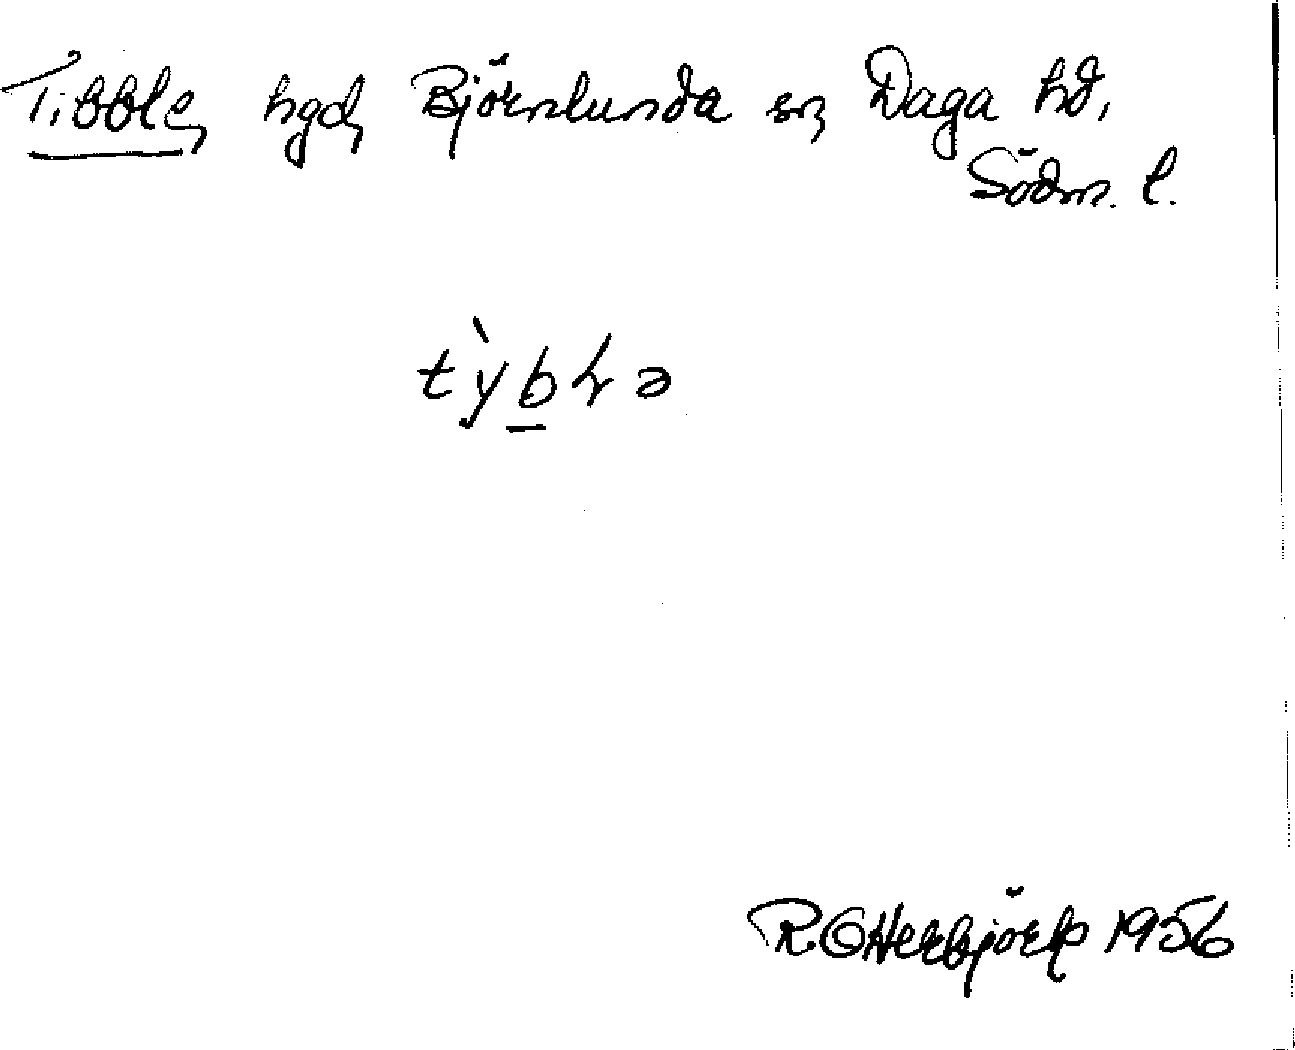 Tibble, hgd, Björnlunda sn, Daga hd,
Södm. l.
tỳbɫə
1956